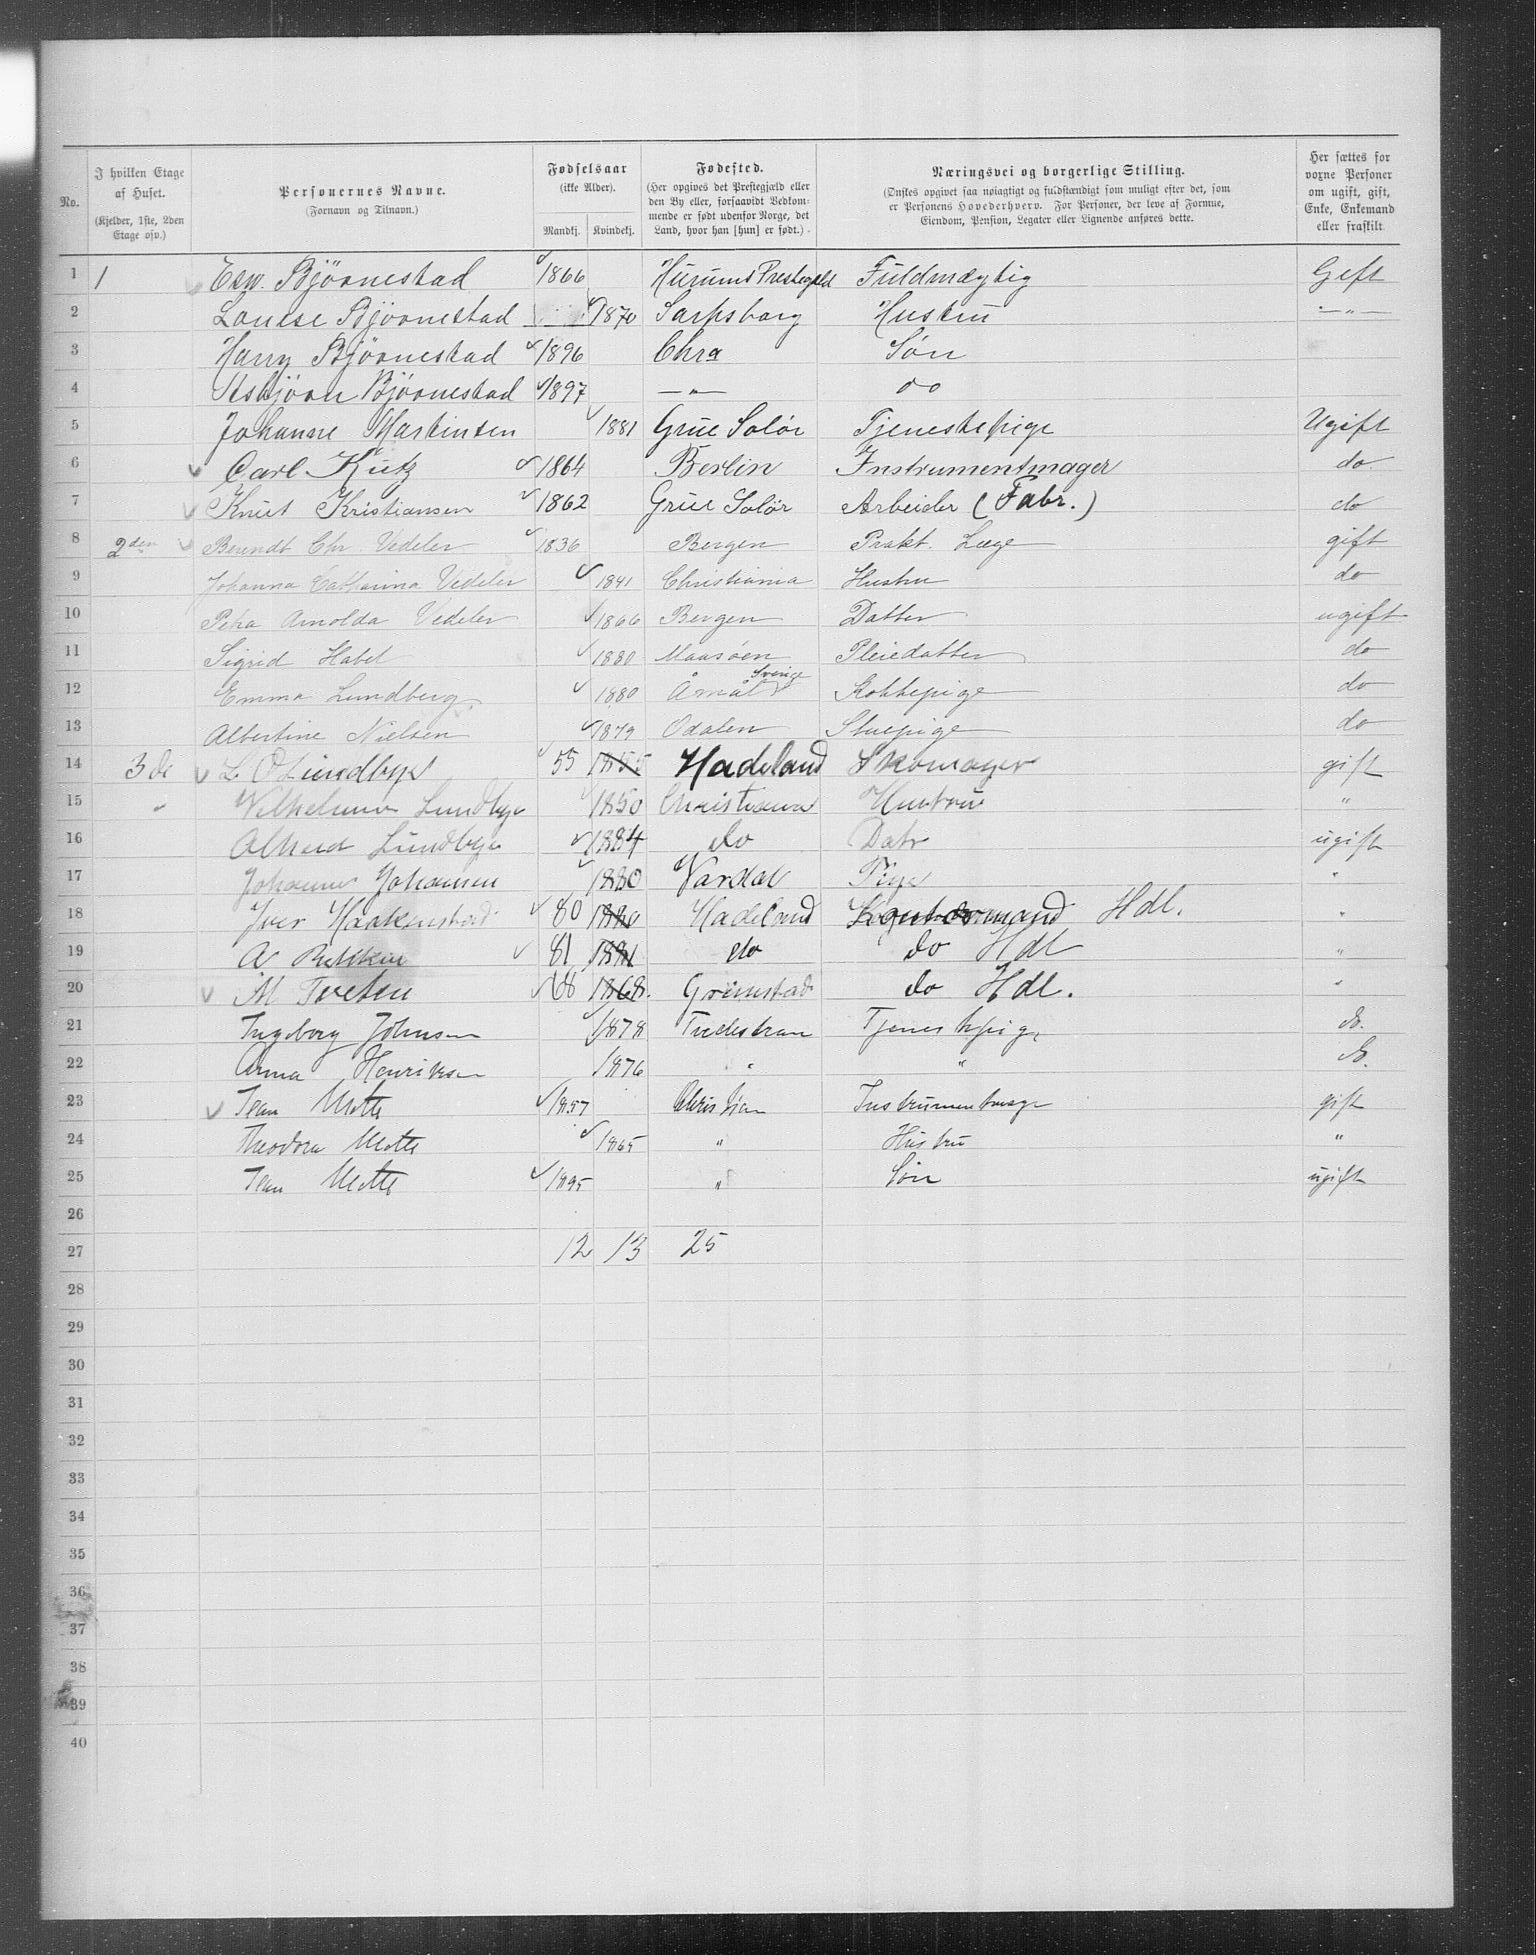 No. I hvilken Etage af Huset. (Kjelder, 1ste, 2den Etage osv.) Personernes Navne. (Fornavn og Tilnavn.) Fødselsaar (ikke Alder). Mandkj. Kvindekj. Fødested. (Her opgives det Prestegjæld eller den By eller, forsaavidt Vedkommende er født udenfor Norge, det Land, hvor han [hun] er født.) Næringsvei og borgerlige Stilling. (Ønskes opgivet saa nøiagtigt og fuldstændigt som muligt efter det, som er Personens Hovederhverv. For Personer, der leve af Formue, Eiendom, Pension, Legater eller Lignende anføres dette. Her sættes for voxne Personer om ugift, gift, Enke, Enkemand eller fraskilt.
1 1 Bjørnestad 1866 Hurums Prestegjeld Fuldmægtig Gift
2 Louise Bjørnestad 1870 Sarpsborg Hustru —"—
3 Harry Bjørnestad 1896 Chra Søn
4 Asbjørn Bjørnestad 1897 —"— do
5 Johanne Martinsen 1881 Grue Solør Tjenestepige Ugift
6 Carl Kutz 1864 Berlin Instrumentmager do
7 Knut Kristiansen 1862 Grue Solør Arbeider (Fabr.) do
8 2den Berendt Chr. Vedeler 1836 Bergen Prakt. Læge gift
9 Johanna Catharina Vedeler 1841 Christiania Hustru do
10 Petra Arnolda Vedeler 1866 Bergen Datter ugift
11 Sigrid Habel 1880 Maasøen Pleiedatter do
12 Emma Lundberg 1880 Åmål Sverige Kokkepige do
13 Albertine Nielsen 1879 Odalen Stuepige do
14 3de L. O Lundbye 55 1855 Hadeland Skomager gift
15 " Vilhelmine Lundbye 1850 Christiania Hustru "
16 Lundbye 1884 do Datr ugift
17 Johanne Johansen 1880 Vardal Pige "
18 Iver Haakenstad 80 1880 Hadeland Kontormand Hdl. "
19 A 81 1881 do do Hdl "
20 M Tveten 68 1868. Grimstad do Hdl. "
21 Ingeborg Johnsen 1878 Tvedestran Tjenestepige do.
22 Anna Henriksen 1876 " " do.
23 Jean Mette 1857 Christian Instrumentmager gift
24 Theodora Mette 1865 " Hustru "
25 Jean Mette 1895 " Søn ugift
26
27 12 13 25
28
29
30
31
32
33
34
35
36
37
38
39
40